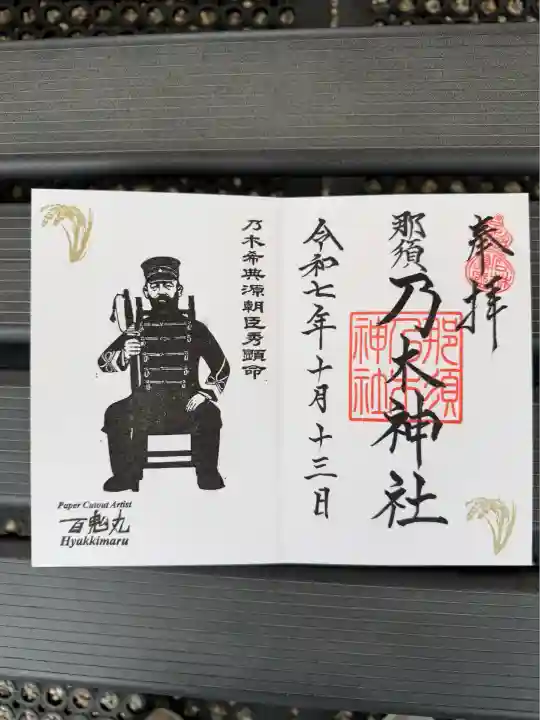 奉拝
那須乃木神社
那須乃木神社
令和七年十月十三日
乃木希典源朝臣秀顕命
Paper Cutout Artist
百鬼丸
Hyakkimaru